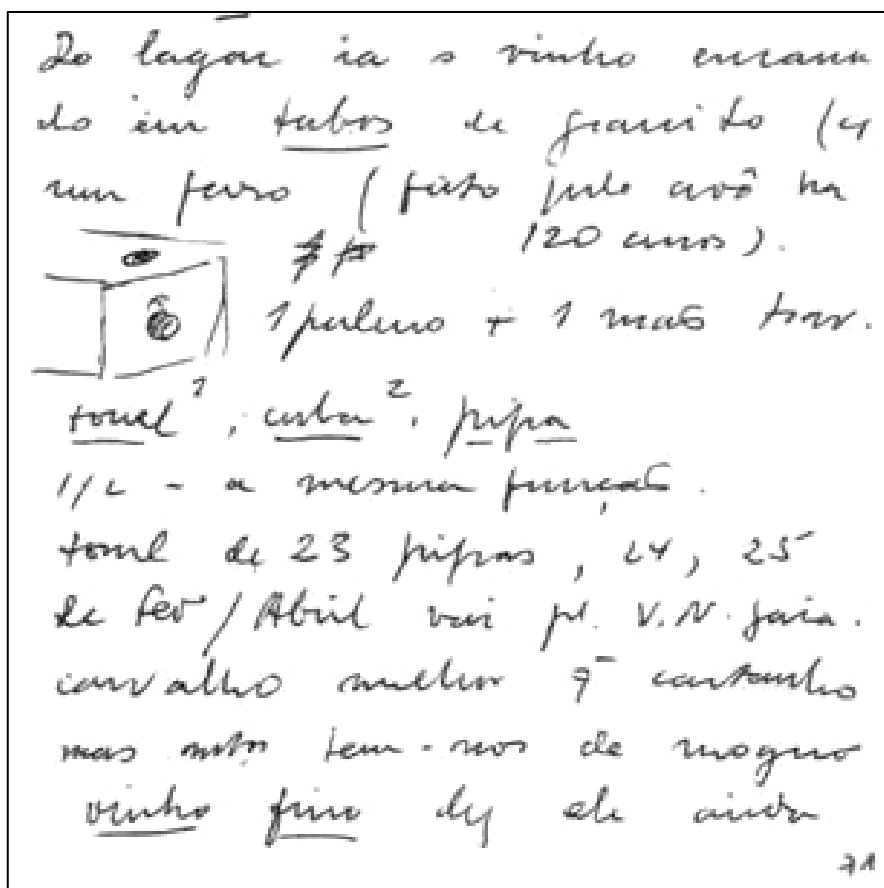 Do lagar ia o vinho encana
do em tubos de granito (
num ferro (feito pelo avô há
120 anos).
1 pequeno + 1 mais
tonel ¹, cuba ², pipa
1/2 - a mesma função.
tonel de 23 pipas, 24, 25
de Fev/Abril vai pª. V.N. Gaia.
carvalho melhor q̄ castanho
mas mtos tem-nos de mogno
vinho fino ele ainda
71